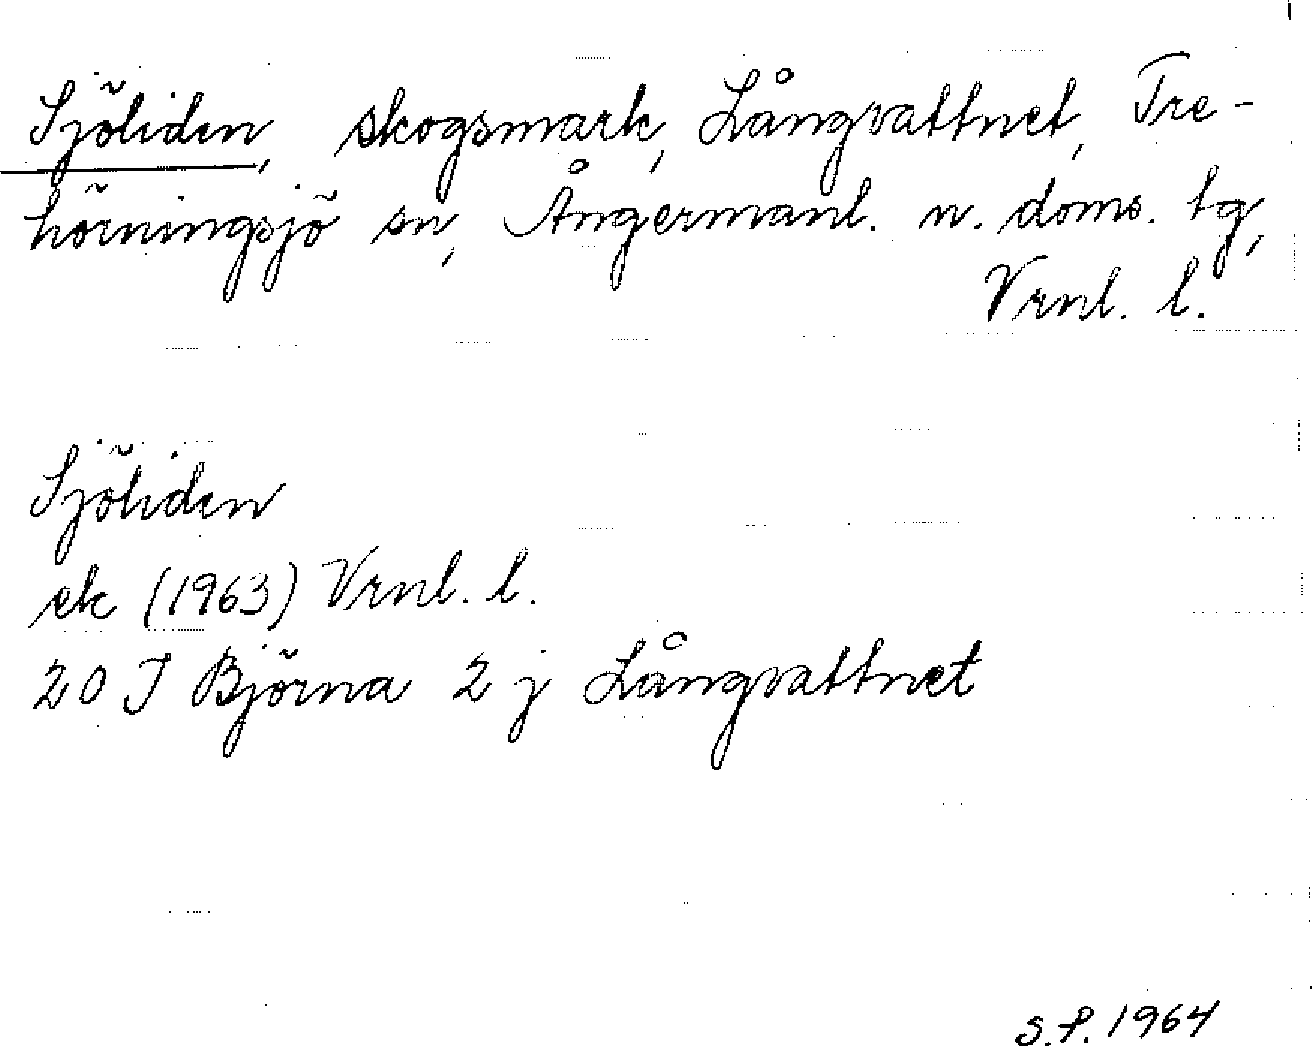 Sjöliden, skogsmark, Långvattnet, Tre-
hörningsjö sn, Ångermanl. n. doms. tg,
Vrnl. l.
Sjöliden
ek (1963) Vrnl. l.
20 J Björna 2 j Långvattnet
S.P. 1964